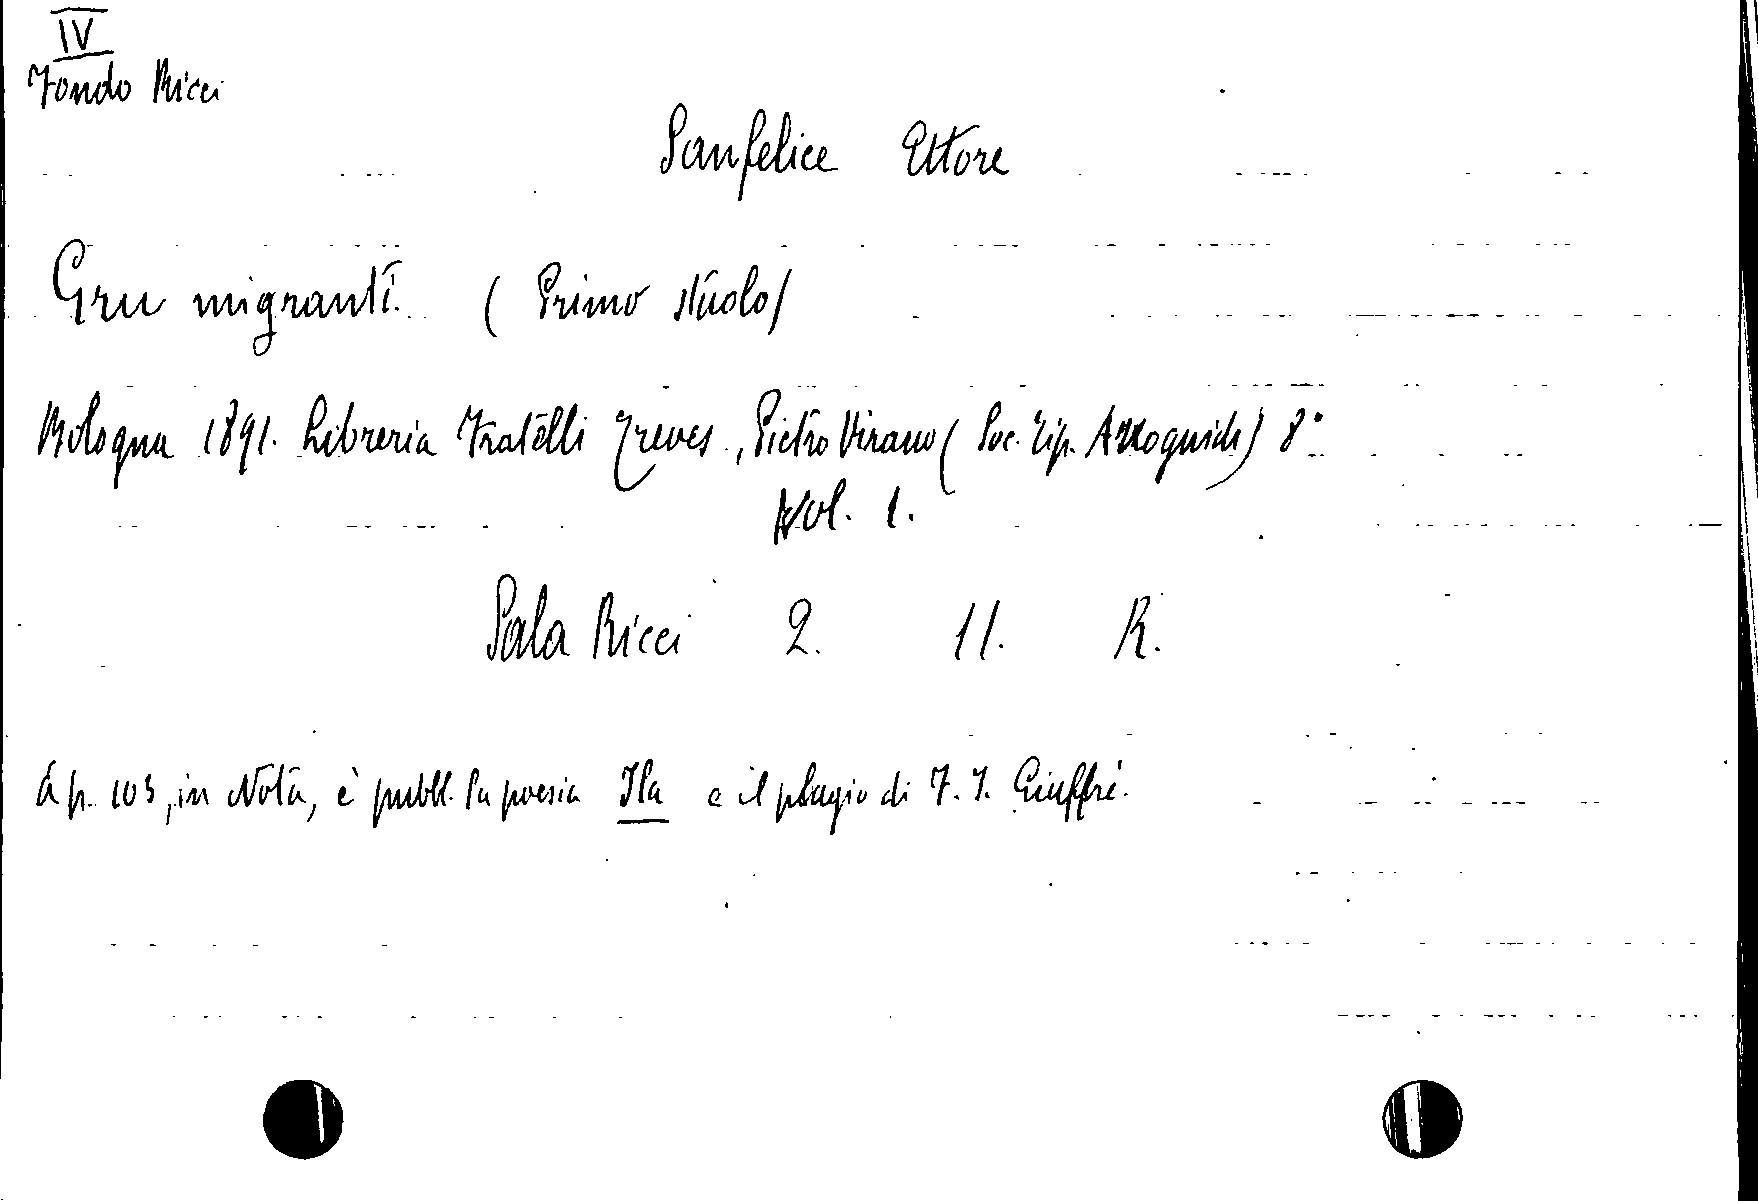 IV
Fondo Ricci
Sanfelice Ettore
Gru migranti. (Primo stuolo)
Bologna 1891. Libreria Fratelli Treves, Pietro Virano (Soc. Tip. Azzoguidi) 8°
Vol. 1.
Sala Ricci 2. 11. R.
A p. 103, in Nota, è pubbl. la poesia Ila e il plagio di F. F. Giuffré.